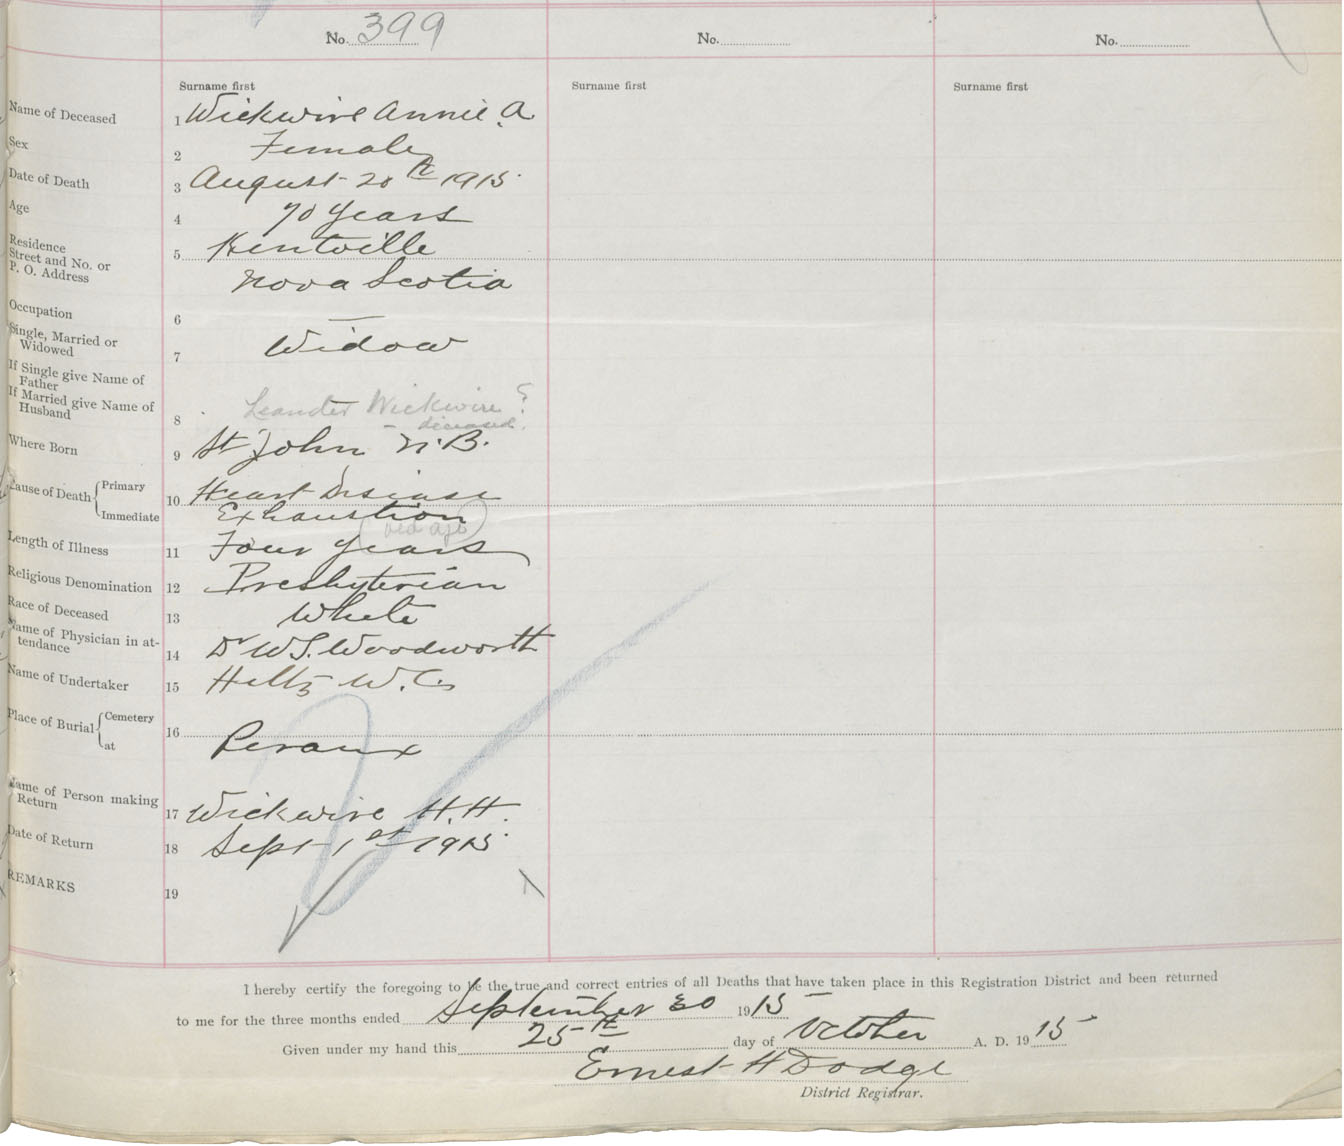 No. 399
No.
No.
Surname first
Surname first
Surname first
Name of Deceased 1 Wickwire Annie A
Sex 2 Female
Date of Death 3 August 20th 1915
Age 4 70 Years
Residence
Street and No. or
P. O. Address 5 Kentville
Nova Scotia
Occupation 6 —
Single, Married or
Widowed 7 Widow
If Single give Name of
Father
If Married give Name of
Husband 8 Leander Wickwire ?
- deceased.
Where Born 9 St John N.B.
Cause of Death Primary 10 Heart Disease
Immediate Exhaustion
(old age)
Length of Illness 11 Four years
Religious Denomination 12 Presbyterian
Race of Deceased 13 White
Name of Physician in at-
tendance 14 Dr W.S. Woodworth
Name of Undertaker 15 Hiltz W.C.
Place of Burial Cemetery 16
at Peraux
Name of Person making
Return 17 Wickwire H.H.
Date of Return 18 Sept 1st 1915
REMARKS 19
I hereby certify the foregoing to be the true and correct entries of all Deaths that have taken place in this Registration District and been returned
to me for the three months ended September 30 1915
Given under my hand this 25th day of October A. D. 1915
Ernest H Dodge
District Registrar.